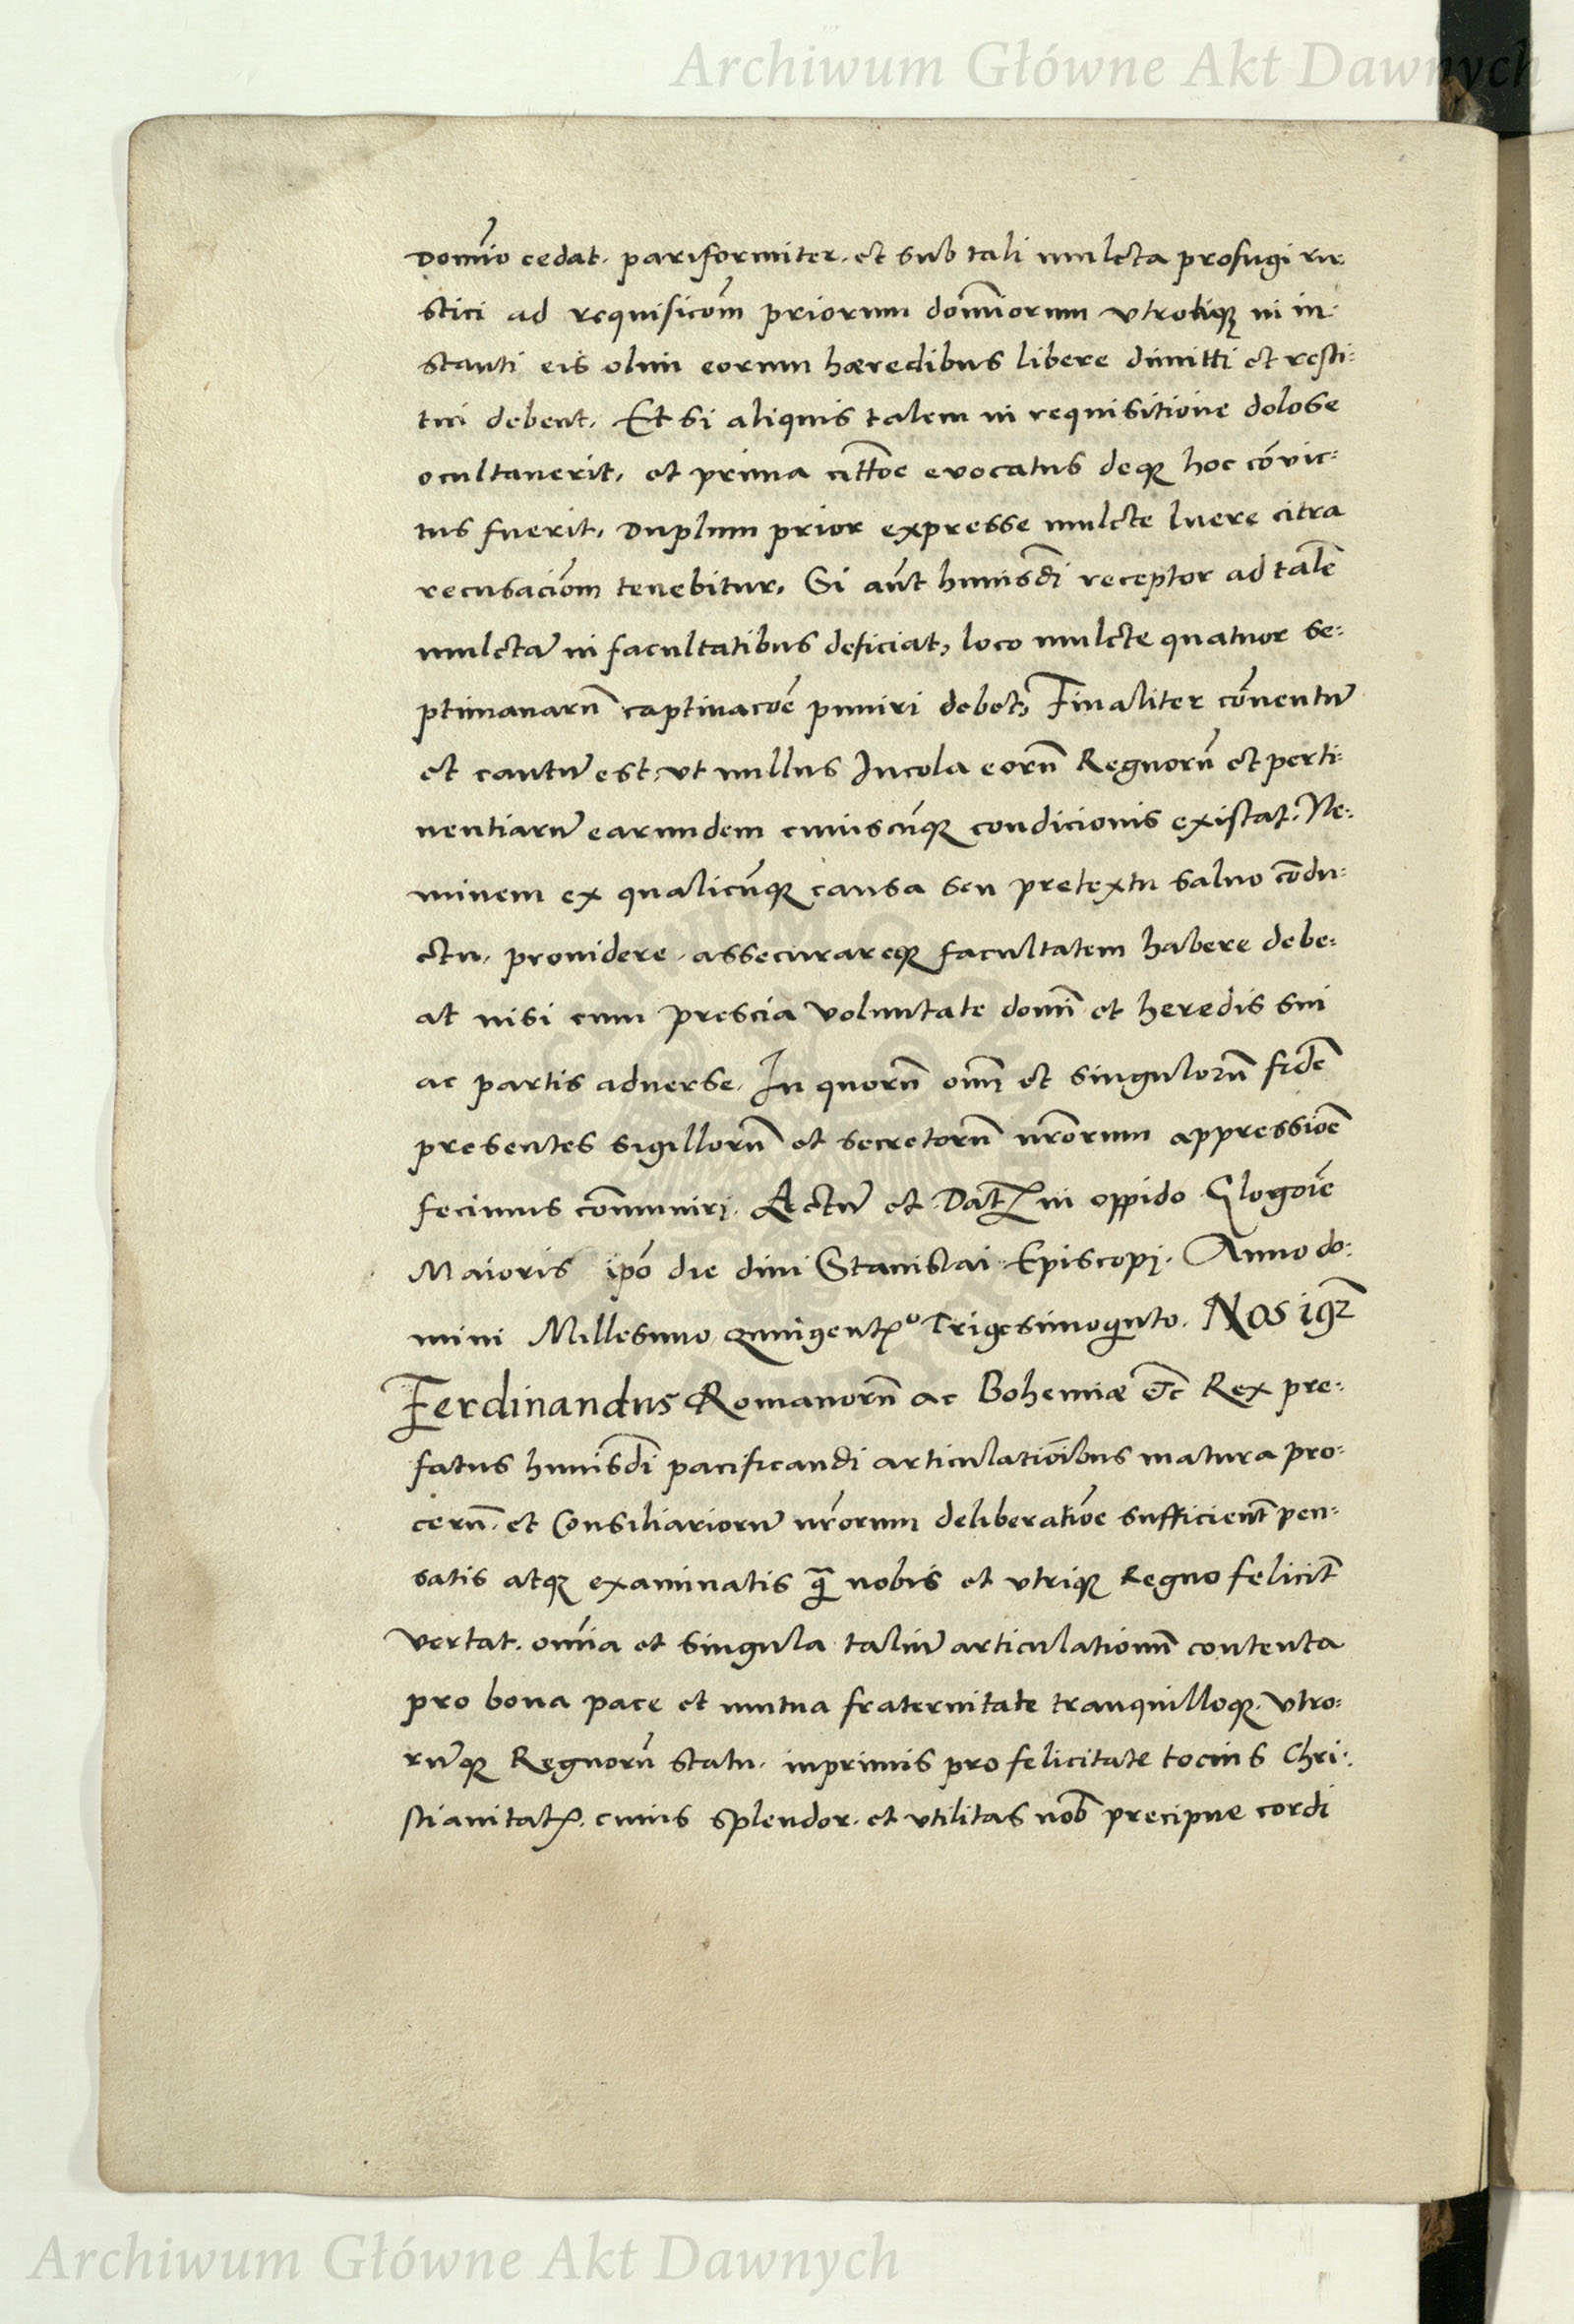 Archiwum Główne Akt Dawnych
Domīo cedat. pariformiter. et sub tali mulcta profugi ru:
stici ad requisicōm priorum domīorum vtrobiq̃ in in:
stanti eis olim eorum hæredibus libere dimitti et resti:
tui debent, Et si aliquis talem in requisitione dolose
ocultauerit, et prima citt̄oe euocatus deq̃ hoc cōvic:
tus fuerit, Duplum prior expresse mulcte luere citra
recusaciōm tenebitur, Si aūt huiusd̄i receptor ad talē
mulctā in facultatibus deficiat, loco mulcte quatuor se:
ptimanarū captiuacōe puniri debet, Finaliter cōuentū
et cautū est, vt nullus Incola eorū Regnorū et perti:
nentiarū earumdem cuiuscūq̃ condicionis existat, Ne:
minem ex qualicūq̃ causa seu pretextu saluo cōdu:
ctu, prouidere, assecurareq̃ facultatem habere debe:
at nisi cum prescia voluntate domī et heredis sui
ac partis aduerse. In quorū om̄ et singulorū fidē
presentes sigillorū et secretorū nr̄orum appressiōe
fecimus cōmuniri. Actū et Dat̄ in oppido Glogoīe
Maioris ipō die diui Stanislai Episcopi. Anno do:
mini Millesimo Quingentꝭº Trigesimoquinto. Nos igr̄
Ferdinandus Romanorū ac Bohemiæ etc̄ Rex pre:
fatus huiusd̄i pacificandi articulatiōibus matura pro:
cerū et Consiliariorū nr̄orum deliberatiōe sufficient̄ pen:
satis atq̃ examinatis q̄ nobis et vtriq̃ Regno felicit̄
vertat. omīa et singula taliū articulationū contenta
pro bona pace et mutua fraternitate tranquilloq̃. vtro:
rūq̃ Regnorū statu. inprimis pro felicitate tocius Chri:
stianitatꝭ. cuius splendor. et vtilitas nob̄ precipue cordi
Archiwum Główne Akt Dawnych